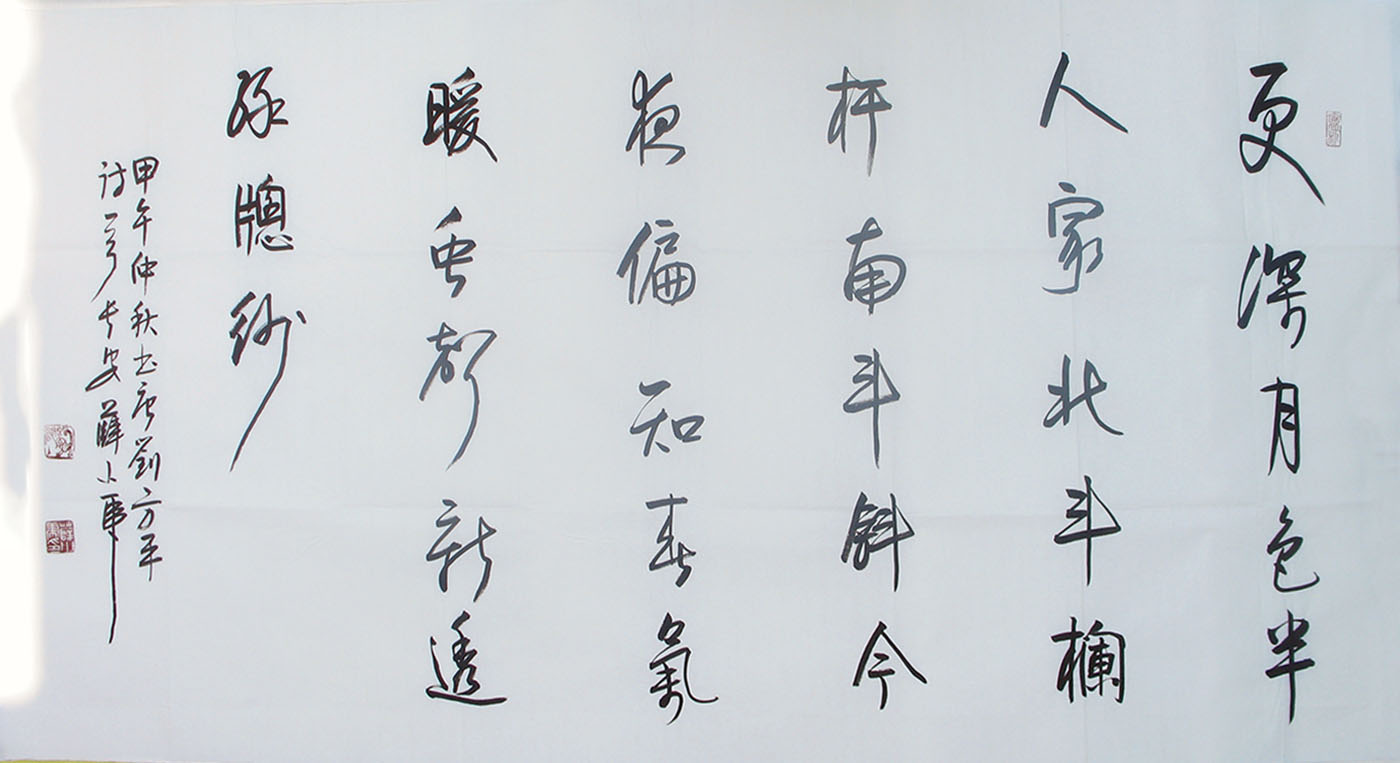 更深月色半
人家北斗欄
杆南斗斜今
夜偏知春氣
暖虫声新透
綠牕紗
甲午仲秋书唐劉方平
诗一首长安薛小